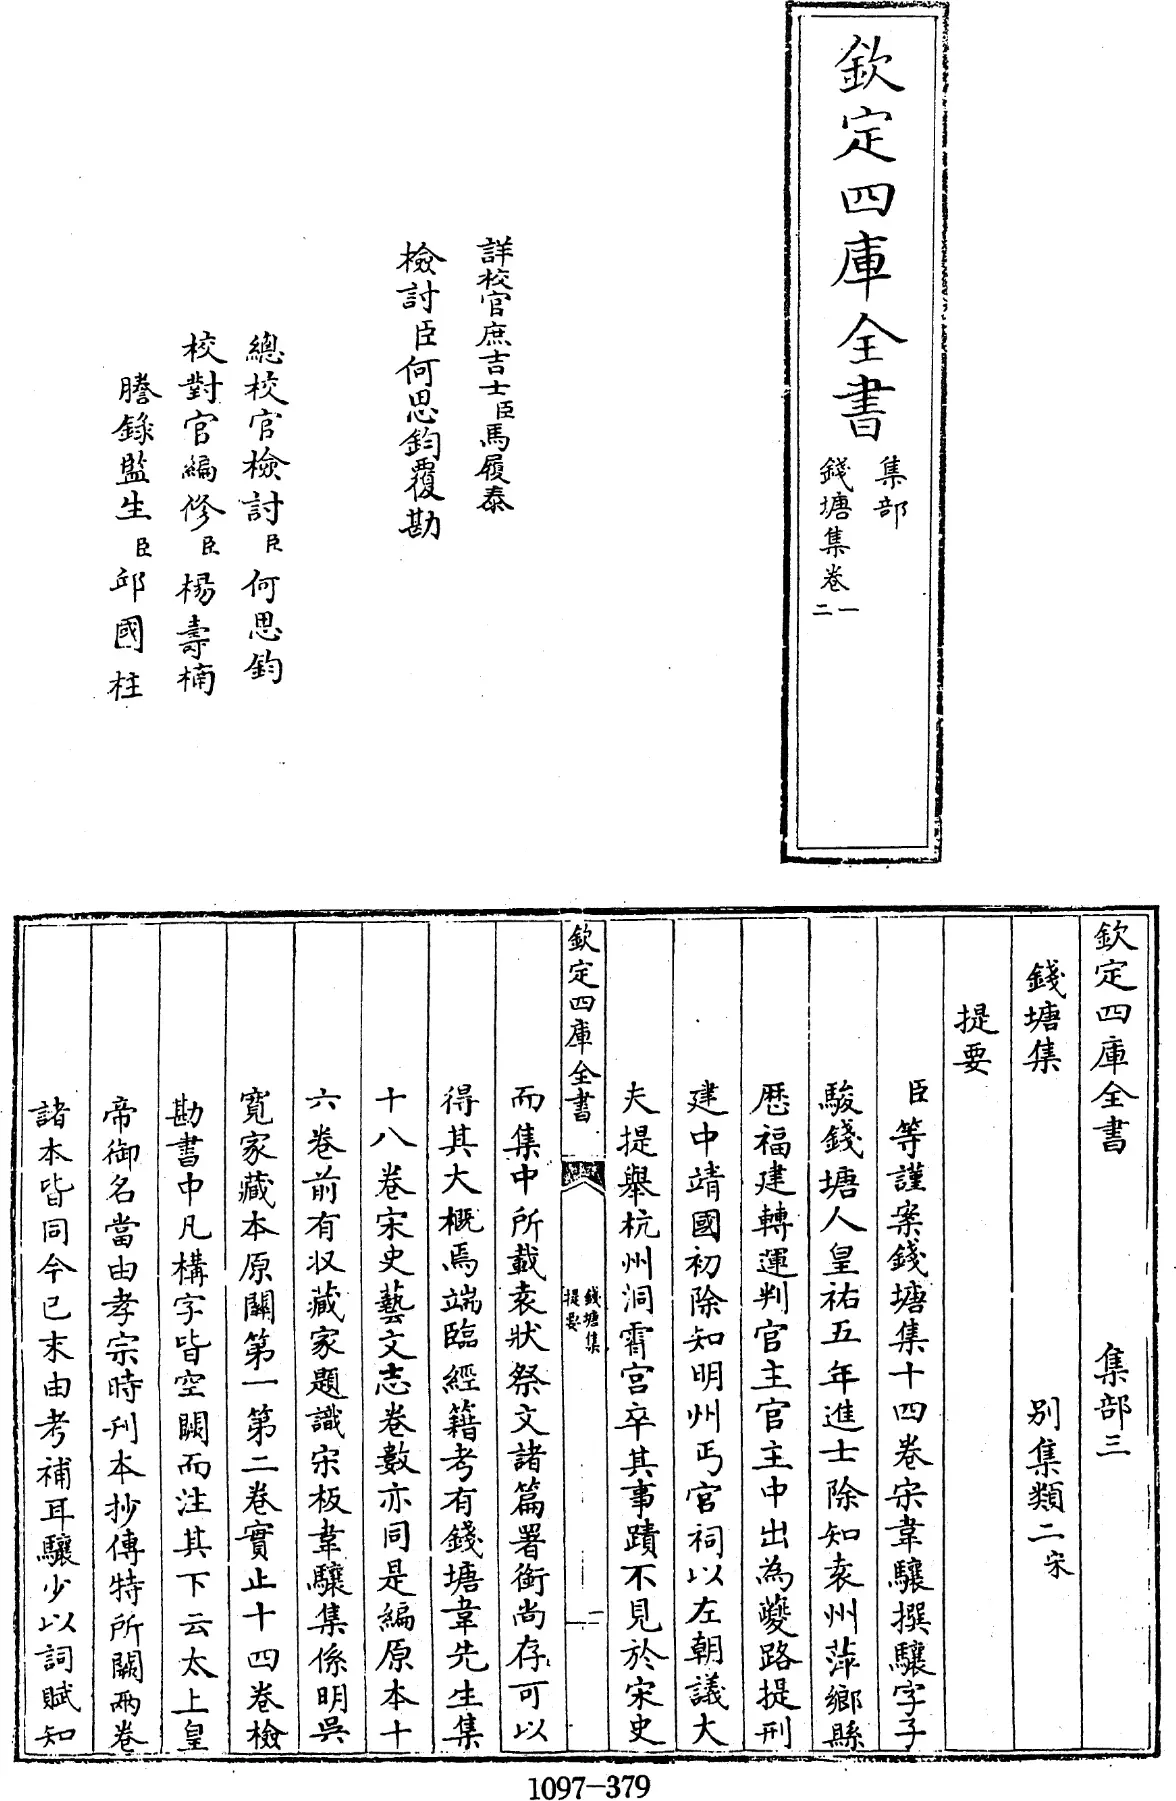 欽定四庫全書
集部
錢塘集卷一
二
詳校官庶吉士臣馬履泰
檢討臣何思鈞覆勘
總校官檢討臣何思鈞
校對官編修臣楊壽楠
謄錄監生臣邱國柱
欽定四庫全書 集部三
錢塘集 别集類二宋
提要
臣等謹案錢塘集十四卷宋韋驤撰驤字子
駿錢塘人皇祐五年進士除知袁州萍鄉縣
歴福建轉運判官主官主中出為夔路提刑
建中靖國初除知明州丐官祠以左朝議大
夫提舉杭州洞霄宫卒其事蹟不見於宋史
欽定四庫全書
錢塘集
提要
二
而集中所載表狀祭文諸篇署銜尚存可以
得其大概焉端臨經籍考有錢塘韋先生集
十八卷宋史藝文志卷數亦同是編原本十
六卷前有収藏家題識宋板韋驤集係明吳
寛家藏本原闕第一第二卷實止十四卷檢
勘書中凡構字皆空闕而注其下云太上皇
帝御名當由孝宗時刋本抄傳特所闕兩卷
諸本皆同今已末由考補耳驤少以詞賦知
1097-379